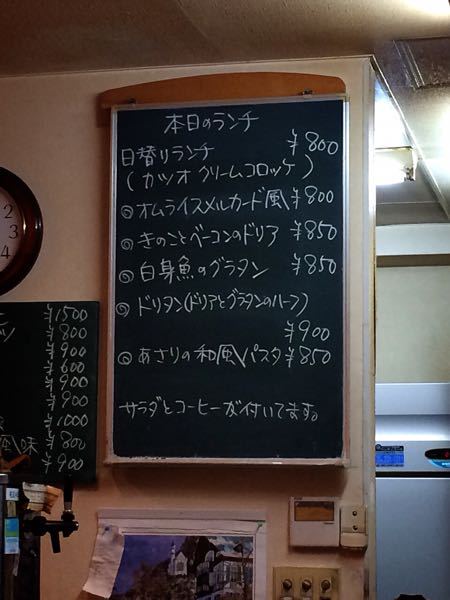 本日のランチ
日替りランチ ¥800
(カツオクリームコロッケ)
◎オムライスメルカード風 ¥800
◎きのことベーコンのドリア ¥850
◎白身魚のグラタン ¥850
◎ドリタン(ドリアとグラタンのハーフ)
¥900
◎あさりの和風パスタ ¥850
サラダとコーヒーが付いてます。
2
3
4
¥1500
¥800
¥900
¥600
¥900
¥900
¥1000
風味 ¥800
¥900